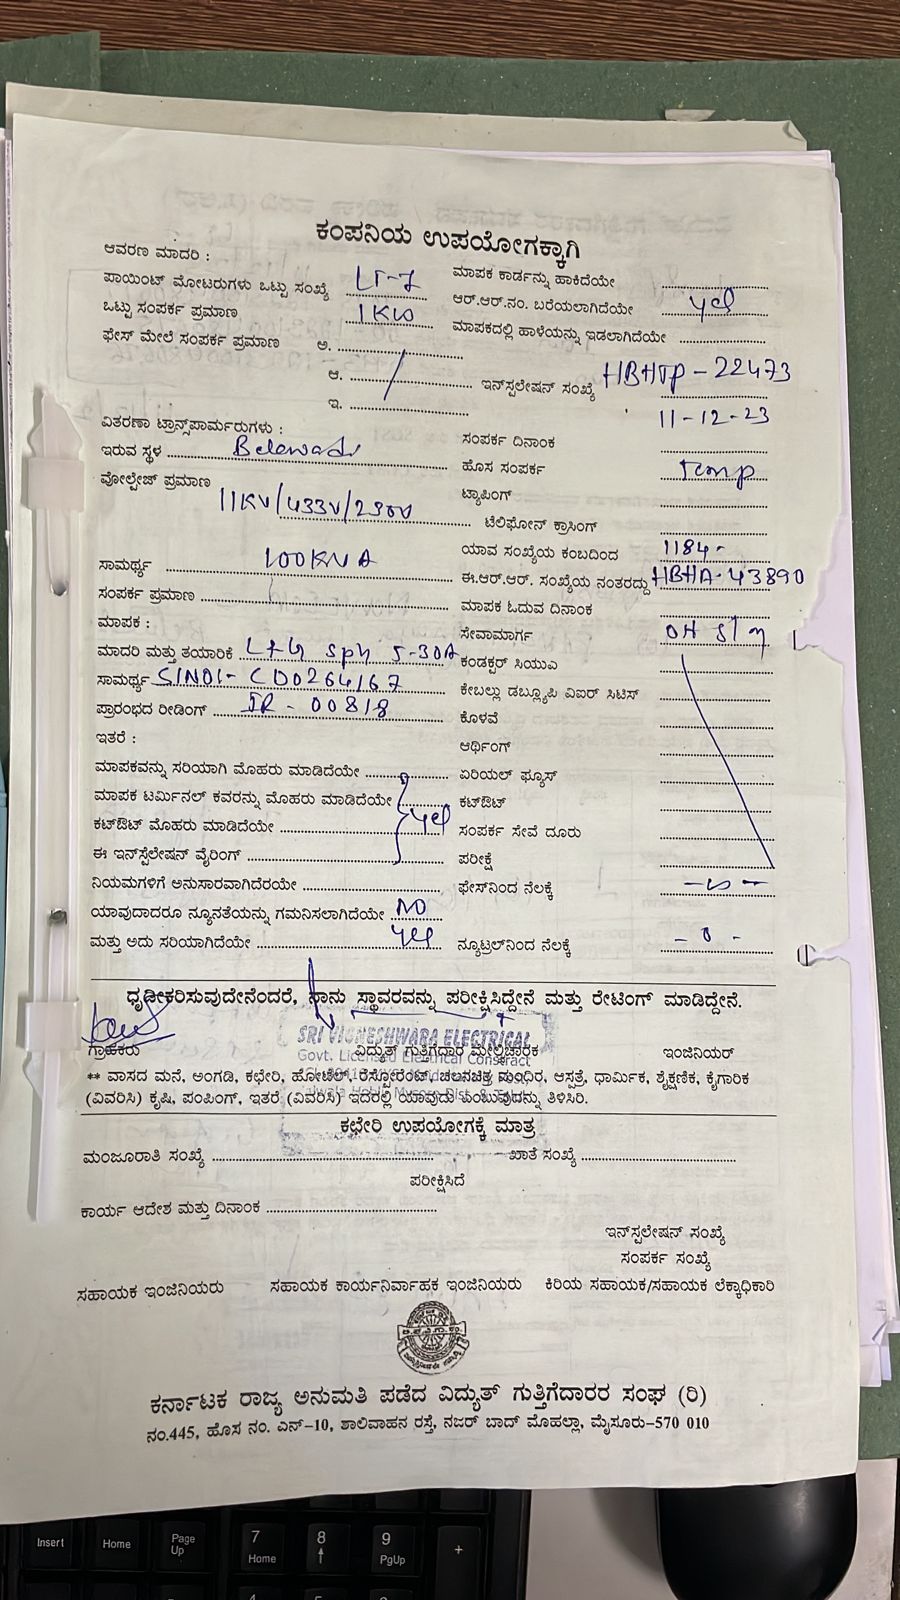 ಕಂಪನಿಯ ಉಪಯೋಗಕ್ಕಾಗಿ
ಆವರಣ ಮಾದರಿ :
ಪಾಯಿಂಟ್ ಮೋಟರುಗಳು ಒಟ್ಟು ಸಂಖ್ಯೆ LT-7
ಒಟ್ಟು ಸಂಪರ್ಕ ಪ್ರಮಾಣ 1KW
ಫೇಸ್ ಮೇಲೆ ಸಂಪರ್ಕ ಪ್ರಮಾಣ ಅ.
ಆ.
ಇ.
ಮಾಪಕ ಕಾರ್ಡನ್ನು ಹಾಕಿದೆಯೇ
ಆರ್.ಆರ್.ನಂ. ಬರೆಯಲಾಗಿದೆಯೇ yes
ಮಾಪಕದಲ್ಲಿ ಹಾಳೆಯನ್ನು ಇಡಲಾಗಿದೆಯೇ
ಇನ್‌ಸ್ಪಲೇಷನ್ ಸಂಖ್ಯೆ HBHTP-22473
11-12-23
ವಿತರಣಾ ಟ್ರಾನ್ಸ್‌ಪಾರ್ಮರುಗಳು :
ಇರುವ ಸ್ಥಳ Belewadi
ವೋಲ್ಟೇಜ್ ಪ್ರಮಾಣ
11KV/433V/230V
ಸಾಮರ್ಥ್ಯ 100KVA
ಸಂಪರ್ಕ ಪ್ರಮಾಣ
ಮಾಪಕ :
ಮಾದರಿ ಮತ್ತು ತಯಾರಿಕೆ L&G Sph 5-30A
ಸಾಮರ್ಥ್ಯ SlNO1- CD0264167
ಪ್ರಾರಂಭದ ರೀಡಿಂಗ್ IR - 00818
ಸಂಪರ್ಕ ದಿನಾಂಕ
ಹೊಸ ಸಂಪರ್ಕ Temp
ಟ್ಯಾಪಿಂಗ್
ಟೆಲಿಫೋನ್ ಕ್ರಾಸಿಂಗ್
ಯಾವ ಸಂಖ್ಯೆಯ ಕಂಬದಿಂದ 1184-
ಈ.ಆರ್.ಆರ್. ಸಂಖ್ಯೆಯ ನಂತರದ್ದು HBHA-43890
ಮಾಪಕ ಓದುವ ದಿನಾಂಕ
ಸೇವಾಮಾರ್ಗ OH S/m
ಕಂಡಕ್ಟರ್ ಸಿಯುಎ
ಕೇಬಲ್ಲು ಡಬ್ಲ್ಯೂಪಿ ವಿಐರ್ ಸಿಟಿಸ್
ಕೊಳವೆ
ಆರ್ಥಿಂಗ್
ಇತರೆ :
ಮಾಪಕವನ್ನು ಸರಿಯಾಗಿ ಮೊಹರು ಮಾಡಿದೆಯೇ
ಮಾಪಕ ಟರ್ಮಿನಲ್ ಕವರನ್ನು ಮೊಹರು ಮಾಡಿದೆಯೇ
ಕಟ್‌ಔಟ್ ಮೊಹರು ಮಾಡಿದೆಯೇ yes
ಈ ಇನ್‌ಸ್ಪೆಲೇಷನ್ ವೈರಿಂಗ್
ನಿಯಮಗಳಿಗೆ ಅನುಸಾರವಾಗಿದೆರಯೇ
ಯಾವುದಾದರೂ ನ್ಯೂನತೆಯನ್ನು ಗಮನಿಸಲಾಗಿದೆಯೇ NO
ಮತ್ತು ಅದು ಸರಿಯಾಗಿದೆಯೇ yes
ಏರಿಯಲ್ ಫ್ಯೂಸ್
ಕಟ್‌ಔಟ್
ಸಂಪರ್ಕ ಸೇವೆ ದೂರು
ಪರೀಕ್ಷೆ
ಫೇಸ್‌ನಿಂದ ನೆಲಕ್ಕೆ
ನ್ಯೂಟ್ರಲ್‌ನಿಂದ ನೆಲಕ್ಕೆ - 0 -
ಧೃಡೀಕರಿಸುವುದೇನೆಂದರೆ, ನಾನು ಸ್ಥಾವರವನ್ನು ಪರೀಕ್ಷಿಸಿದ್ದೇನೆ ಮತ್ತು ರೇಟಿಂಗ್ ಮಾಡಿದ್ದೇನೆ.
SRI VIGNESHWARA ELECTRICAL
Govt. Licensed Electrical Contract
ಗ್ರಾಹಕರು ವಿದ್ಯುತ್ ಗುತ್ತಿಗೆದಾರ ಮೇಲ್ವಿಚಾರಕ ಇಂಜಿನಿಯರ್
** ವಾಸದ ಮನೆ, ಅಂಗಡಿ, ಕಛೇರಿ, ಹೋಟೆಲ್, ರೆಸ್ಟೋರೆಂಟ್, ಚಲನಚಿತ್ರ ಮಂಧಿರ, ಆಸ್ಪತ್ರೆ, ಧಾರ್ಮಿಕ, ಶೈಕ್ಷಣಿಕ, ಕೈಗಾರಿಕ
(ವಿವರಿಸಿ) ಕೃಷಿ, ಪಂಪಿಂಗ್, ಇತರೆ (ವಿವರಿಸಿ) ಇದರಲ್ಲಿ ಯಾವುದು ಎಂಬುವುದನ್ನು ತಿಳಿಸಿರಿ.
ಕಛೇರಿ ಉಪಯೋಗಕ್ಕೆ ಮಾತ್ರ
ಮಂಜೂರಾತಿ ಸಂಖ್ಯೆ ಖಾತೆ ಸಂಖ್ಯೆ
ಪರೀಕ್ಷಿಸಿದೆ
ಕಾರ್ಯ ಆದೇಶ ಮತ್ತು ದಿನಾಂಕ
ಇನ್‌ಸ್ಪಲೇಷನ್ ಸಂಖ್ಯೆ
ಸಂಪರ್ಕ ಸಂಖ್ಯೆ
ಸಹಾಯಕ ಇಂಜಿನಿಯರು ಸಹಾಯಕ ಕಾರ್ಯನಿರ್ವಾಹಕ ಇಂಜಿನಿಯರು ಕಿರಿಯ ಸಹಾಯಕ/ಸಹಾಯಕ ಲೆಕ್ಕಾಧಿಕಾರಿ
ಕರ್ನಾಟಕ ರಾಜ್ಯ ಅನುಮತಿ ಪಡೆದ ವಿದ್ಯುತ್ ಗುತ್ತಿಗೆದಾರರ ಸಂಘ (ರಿ)
ನಂ.445, ಹೊಸ ನಂ. ಎನ್-10, ಶಾಲಿವಾಹನ ರಸ್ತೆ, ನಜರ್ ಬಾದ್ ಮೊಹಲ್ಲಾ, ಮೈಸೂರು-570 010
Insert Home Page Up 7 Home 8 9 PgUp +